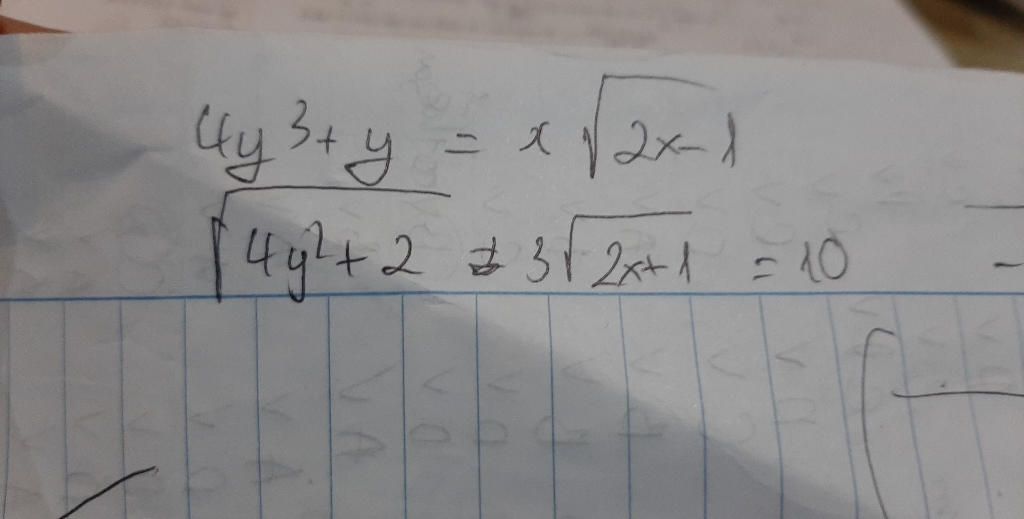 4y³ + y = x √(2x-1)
√(4y² + 2) + 3√(2x+1) = 10